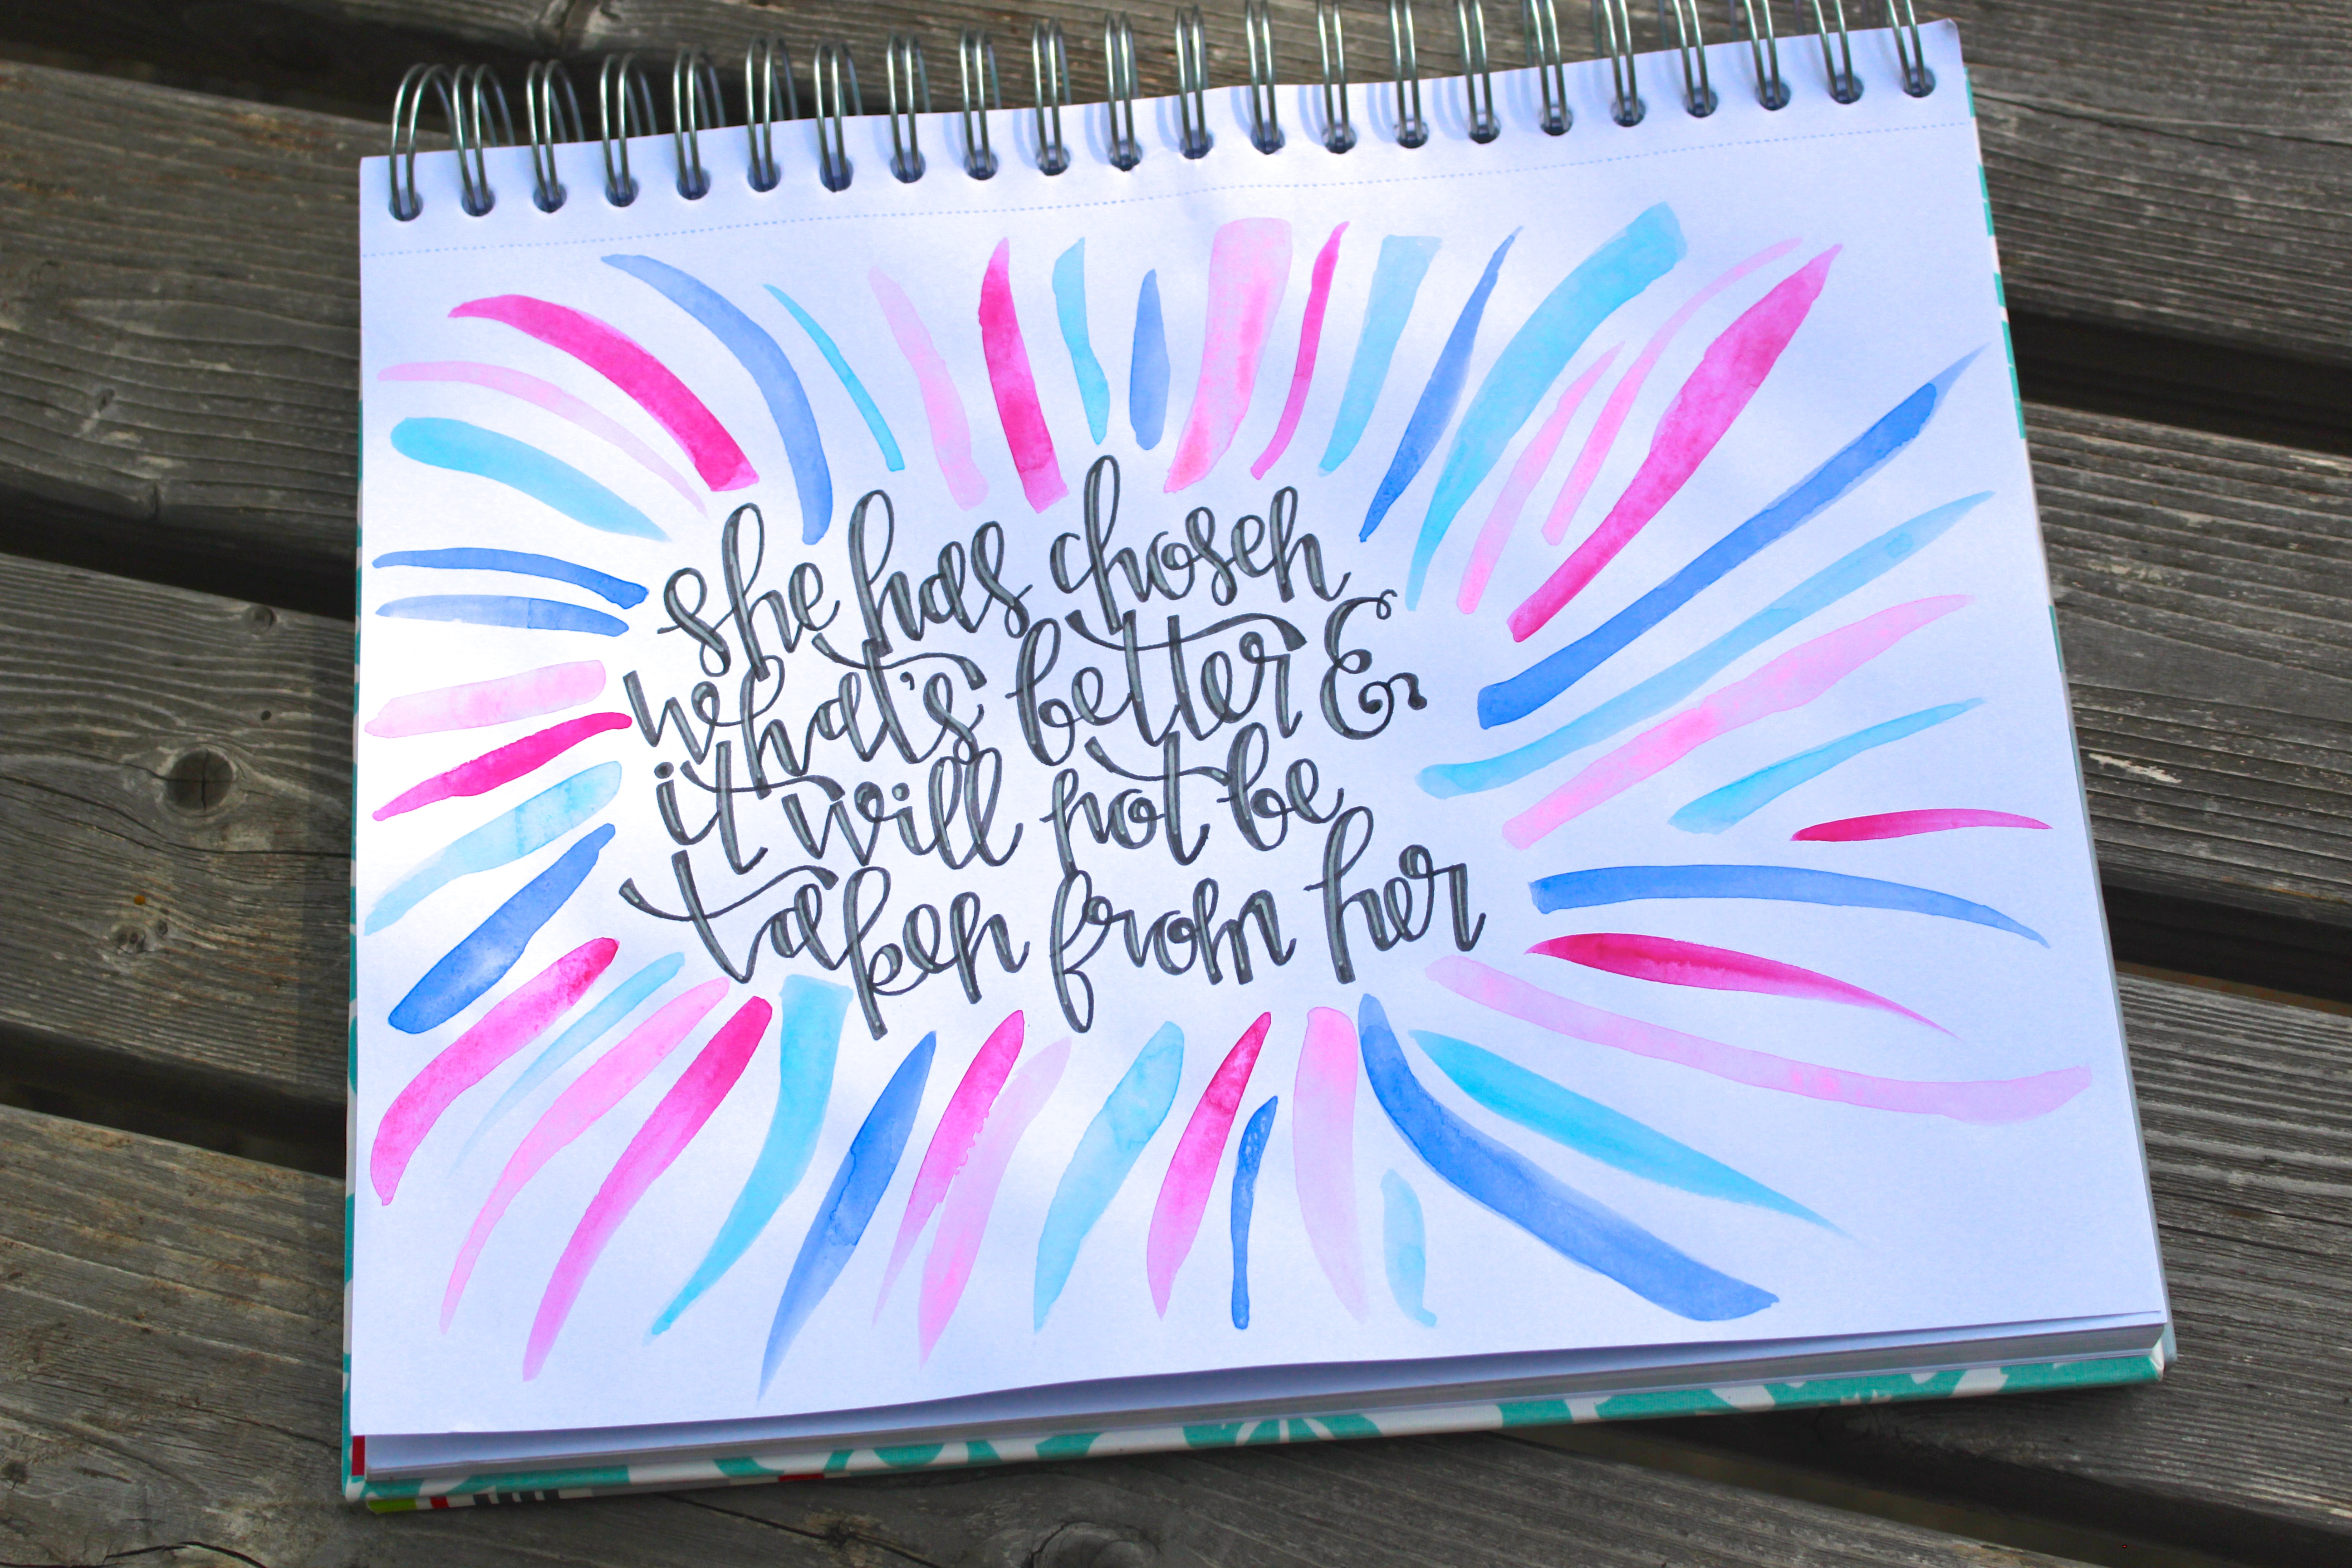 she has chosen
what's better &
it will not be
taken from her